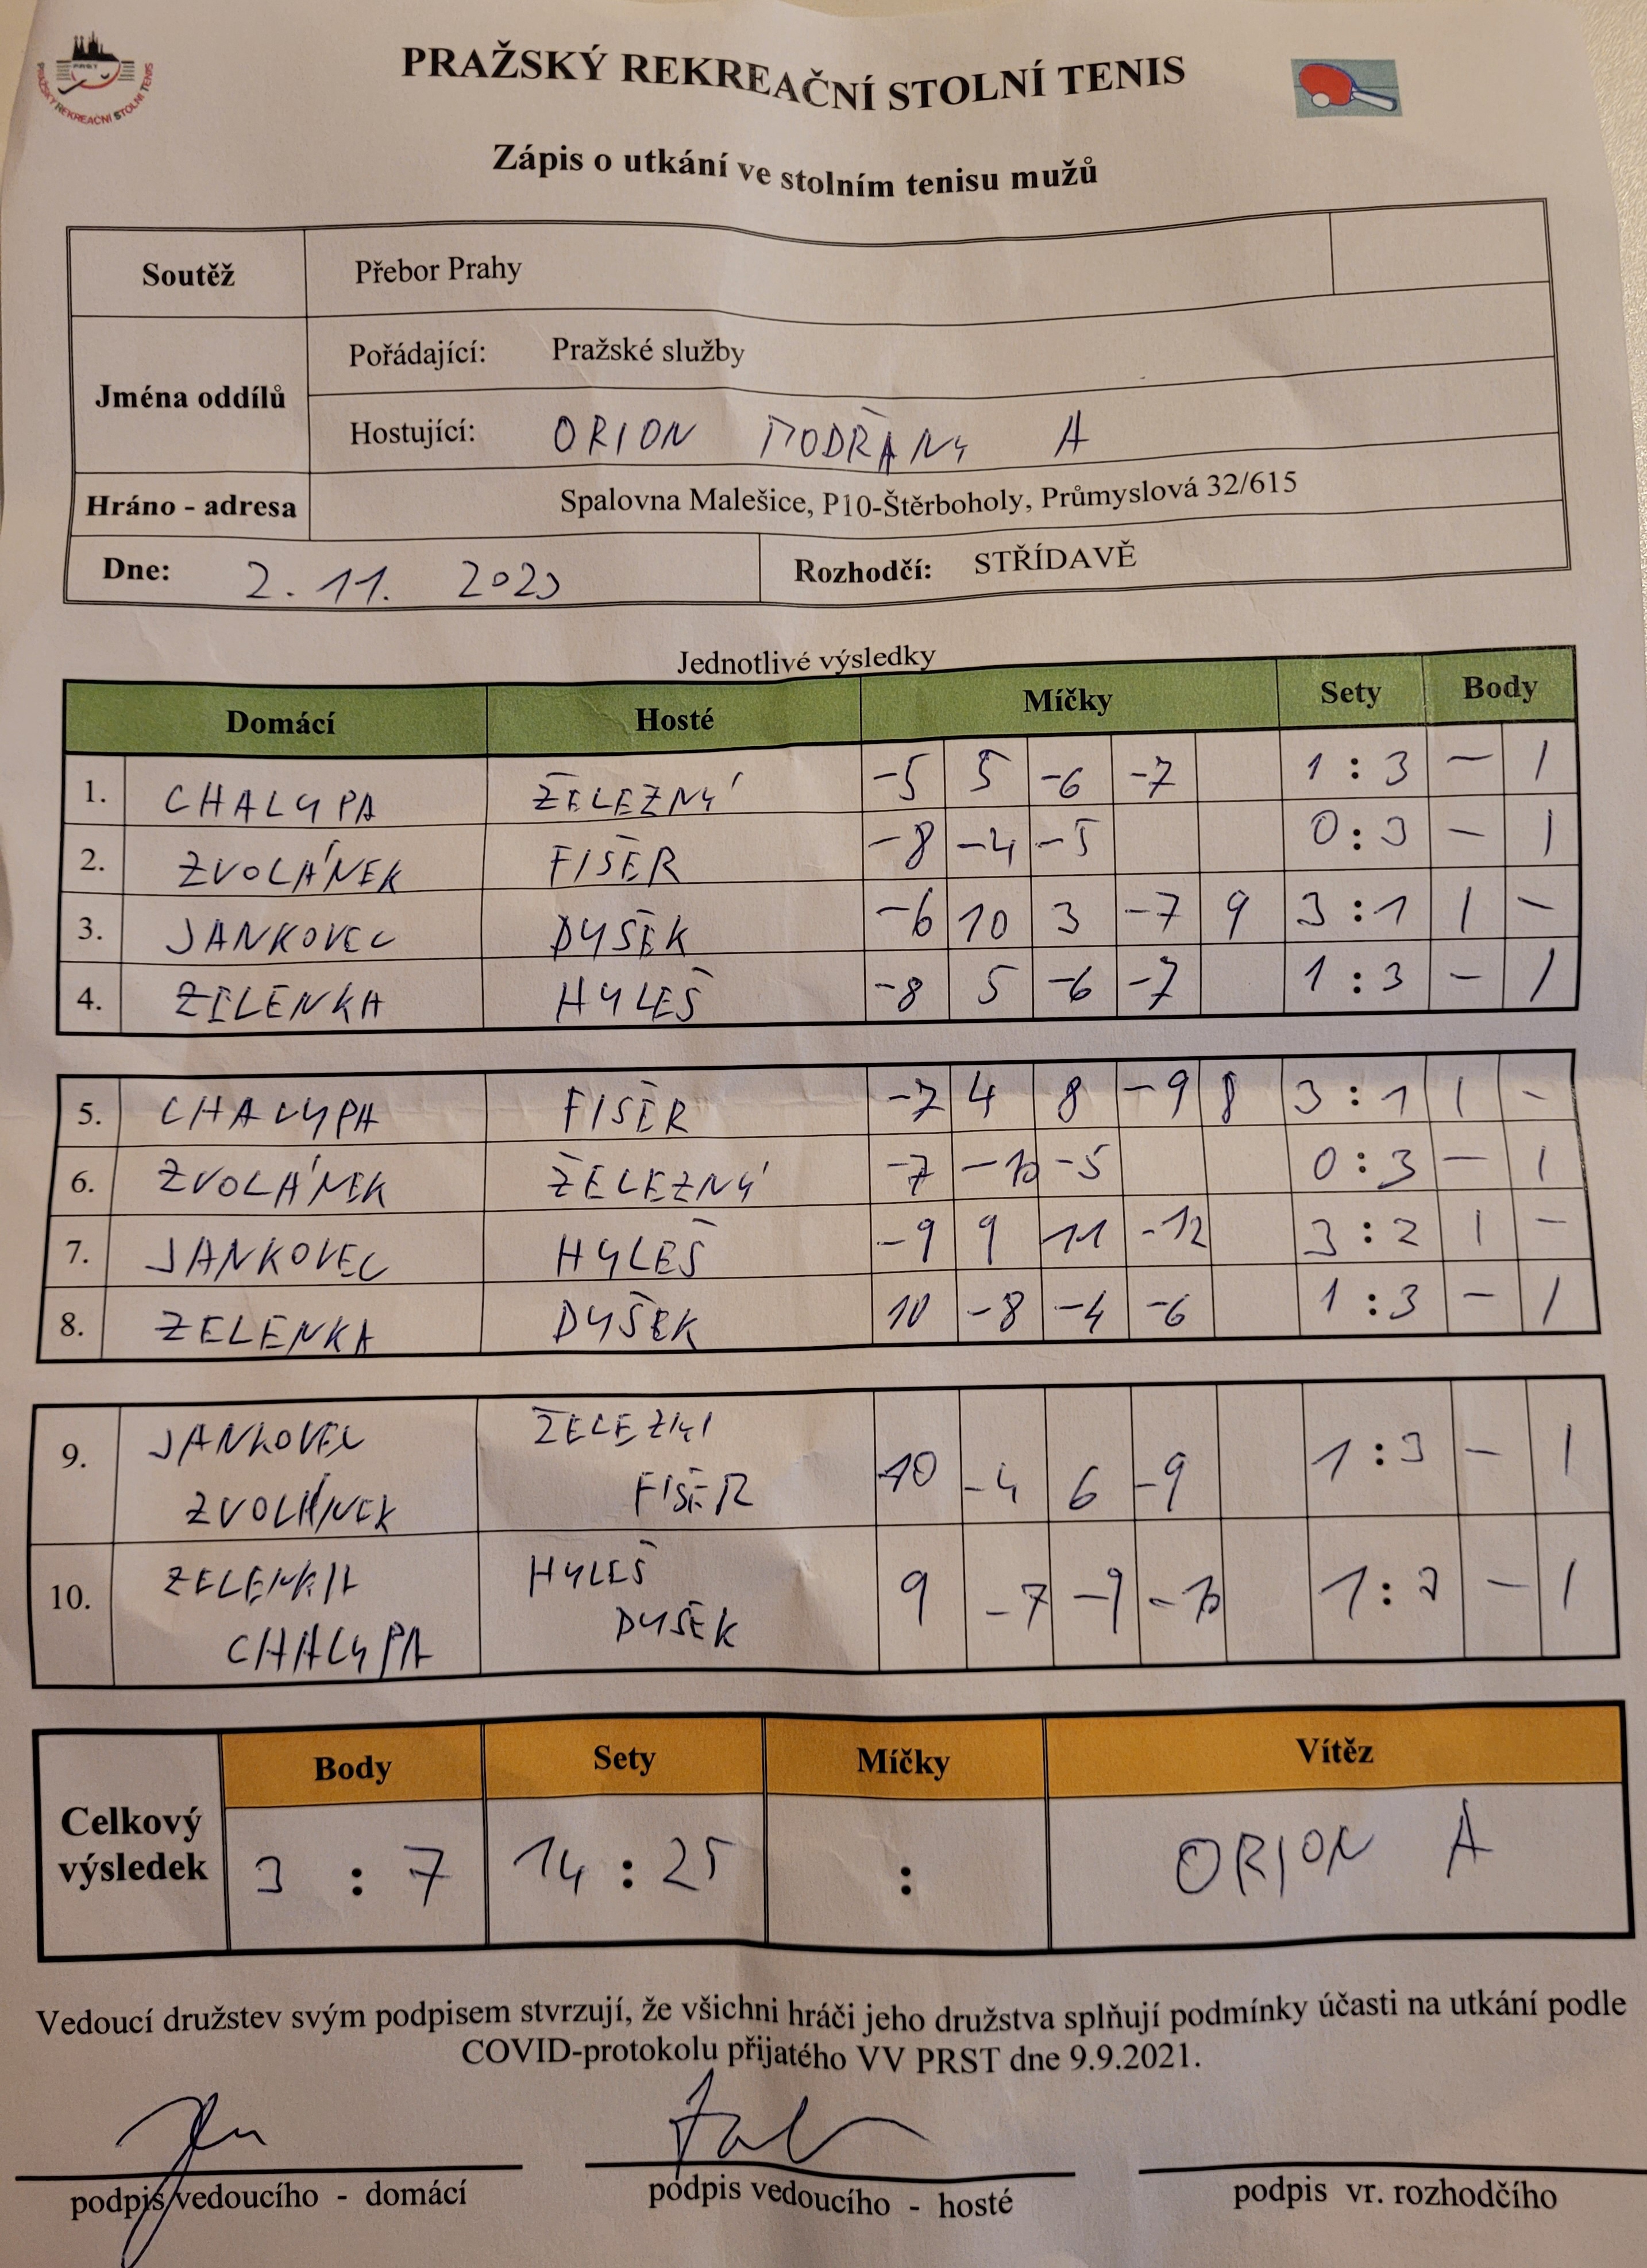 PRAŽSKÝ REKREAČNÍ STOLNÍ TENIS
PRST
PRAŽSKÝ REKREAČNÍ STOLNÍ TENIS
Zápis o utkání ve stolním tenisu mužů
Soutěž Přebor Prahy
Jména oddílů
Pořádající: Pražské služby
Hostující: ORION MODŘANY A
Hráno - adresa Spalovna Malešice, P10-Štěrboholy, Průmyslová 32/615
Dne: 2. 11. 2023 Rozhodčí: STŘÍDAVĚ
Jednotlivé výsledky
Domácí Hosté Míčky Sety Body
1. CHALYPA ŽELEZNÝ -5 5 -6 -7 1 : 3 - 1
2. ZVOLÁNEK FIŠER -8 -4 -5 0 : 3 - 1
3. JANKOVEC DYŠEK -6 10 3 -7 9 3 : 1 1 -
4. ZELENKA HYLEŠ -8 5 -6 -7 1 : 3 - 1
5. CHALYPA FIŠER -7 4 8 -9 8 3 : 1 1 -
6. ZVOLÁNEK ŽELEZNÝ -7 -10 -5 0 : 3 - 1
7. JANKOVEC HYLEŠ -9 9 11 -12 3 : 2 1 -
8. ZELENKA DYŠEK 10 -8 -4 -6 1 : 3 - 1
9. JANKOVEC ŽELEZNÝ
ZVOLÁNEK FIŠER -10 -4 6 -9 1 : 3 - 1
10. ZELENKA HYLEŠ
CHALYPA DYŠEK 9 -7 -9 -10 1 : 3 - 1
Body Sety Míčky Vítěz
Celkový výsledek 3 : 7 14 : 25 : ORION A
Vedoucí družstev svým podpisem stvrzují, že všichni hráči jeho družstva splňují podmínky účasti na utkání podle
COVID-protokolu přijatého VV PRST dne 9.9.2021.
podpis vedoucího - domácí podpis vedoucího - hosté podpis vr. rozhodčího